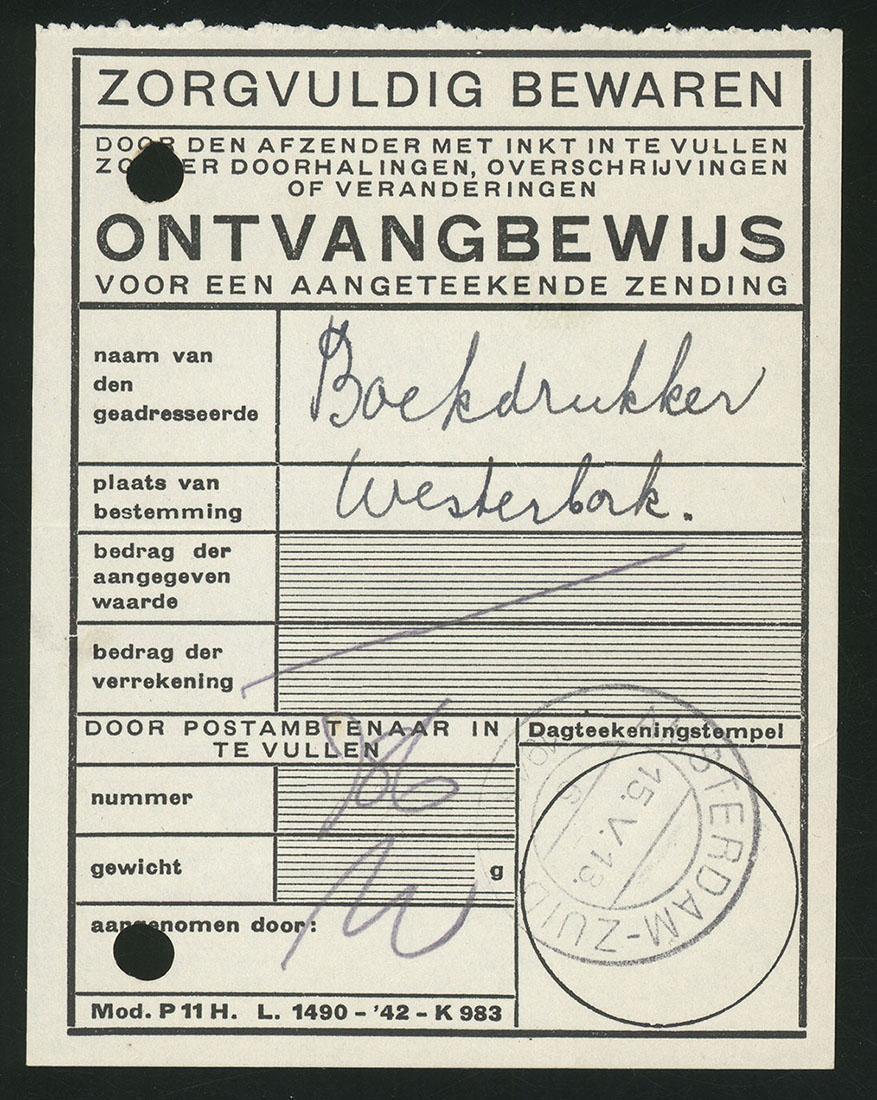 ZORGVULDIG BEWAREN
DOOR DEN AFZENDER MET INKT IN TE VULLEN
ZONDER DOORHALINGEN, OVERSCHRIJVINGEN
OF VERANDERINGEN
ONTVANGBEWIJS
VOOR EEN AANGETEEKENDE ZENDING
naam van
den
geadresseerde
Boekdrukker
plaats van
bestemming
Westerbork.
bedrag der
aangegeven
waarde
bedrag der
verrekening
DOOR POSTAMBTENAAR IN
TE VULLEN
nummer
gewicht
g
aangenomen door:
Mod. P 11 H. L. 1490 - '42 - K 983
Dagteekeningstempel
AMSTERDAM-ZUID
15.V.